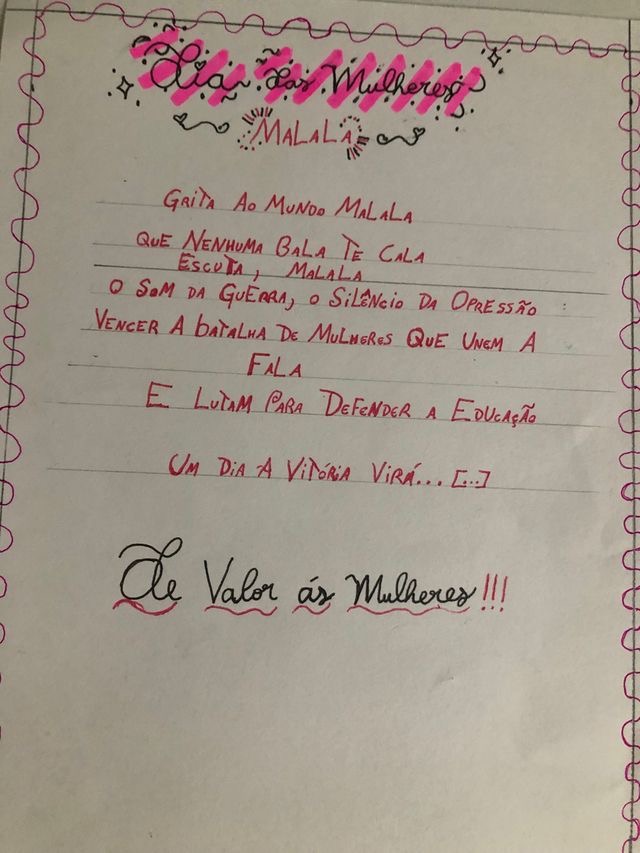 Dia das Mulheres
MALALA
GRITA AO MUNDO MALALA
QUE NENHUMA BALA TE CALA
ESCUTA, MALALA
O SOM DA GUERRA, O SILÊNCIO DA OPRESSÃO
VENCER A BATALHA DE MULHERES QUE UNEM A
FALA
E LUTAM PARA DEFENDER A EDUCAÇÃO
UM DIA A VITÓRIA VIRÁ... [...]
De Valor ás Mulheres!!!